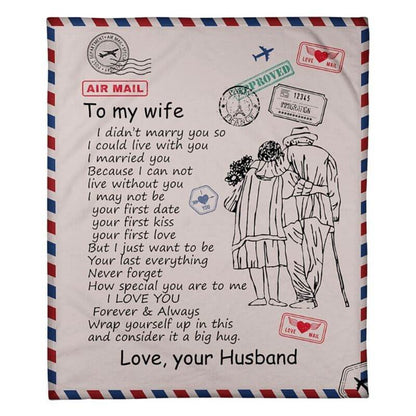 AIR MAIL
LOVE MAIL
APPROVED
12345
IMMIGRATION
To my wife
I didn't marry you so
I could live with you
I married you
Because I can not
live without you
I may not be
your first date
your first kiss
your first love
But I just want to be
Your last everything
Never forget
How special you are to me
I LOVE YOU
Forever & Always
Wrap yourself up in this
and consider it a big hug.
Love, your Husband
LOVE MAIL